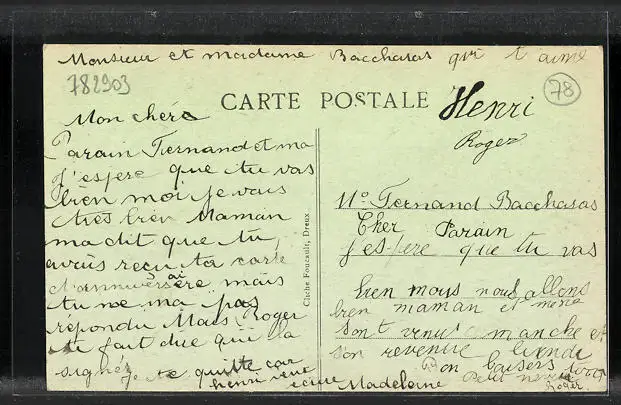 Monsieur et madame Bacchasas qui t'aime
782903
CARTE POSTALE
78
Henri
Roger
Mon chére
Parain Fernand et ma
j'espère que tu vas
bien moi je vais
très bien Maman
ma dit que tu
avais reçu ta carte
d'anniversaire mais
tu ne ma pas
répondu Mais Roger
te fait dire qui la
signé je te quitte car
henri veut
écrire Madeleine
Cliche Foucault, Dreux
Mr Fernand Bacchasas
Cher Parain
J'espère que tu vas
bien nous nous allons
bien maman et mémé
sont venu manche et
son revenue
bon baisers
Petit
Roger